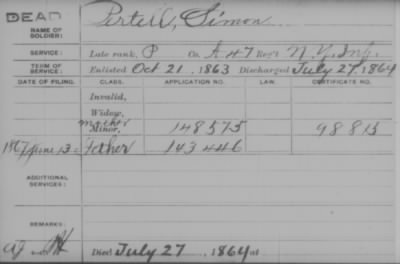 DEAD
NAME OF SOLDIER: Pertell, Simon
SERVICE: Late rank, P Co. A 47 Reg't N.Y. Inf.
TERM OF SERVICE: Enlisted Oct 21, 1863 Discharged July 27, 1864
DATE OF FILING. CLASS. APPLICATION NO. LAW. CERTIFICATE NO.
Invalid,
Widow,
Mother
Minor, 148575 98815
1867 June 13 Father 143446
ADDITIONAL SERVICES:
REMARKS:
Died July 27, 1864 at